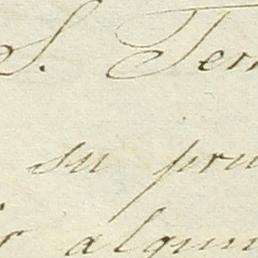 S. Ter
su pru
r algun